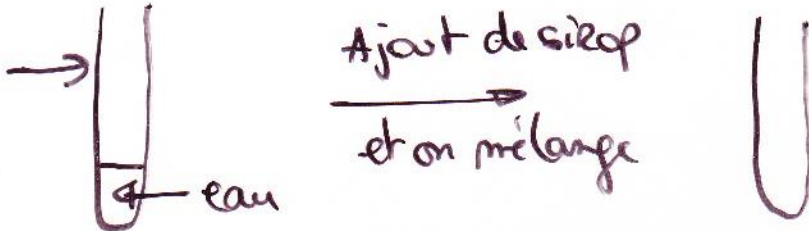 Ajout de sirop
et on mélange
eau